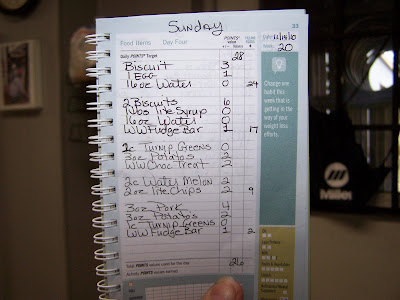 Sunday
33
Food Items Day Four POINTS® value
Date 
Week 20
Daily POINTS® Target 28
Biscuit 3
1 EGG 1
16oz Water 0 24
2 Biscuits 6
Lite Syrup
16oz Water 0
WW Fudge Bar 1 17
1c Turnip Greens 0
3oz Potatos 2
WW Choc Treat 2
2c Water Melon 2
2oz Lite Chips 2 9
3oz Pork 4
3oz Potatos 2
1c Turnip Greens 0
WW Fudge Bar 1 2
Total POINTS values used for the day 26
Activity POINTS values earned
Change one
habit this
week that
is getting in
the way of
your weight loss
efforts.